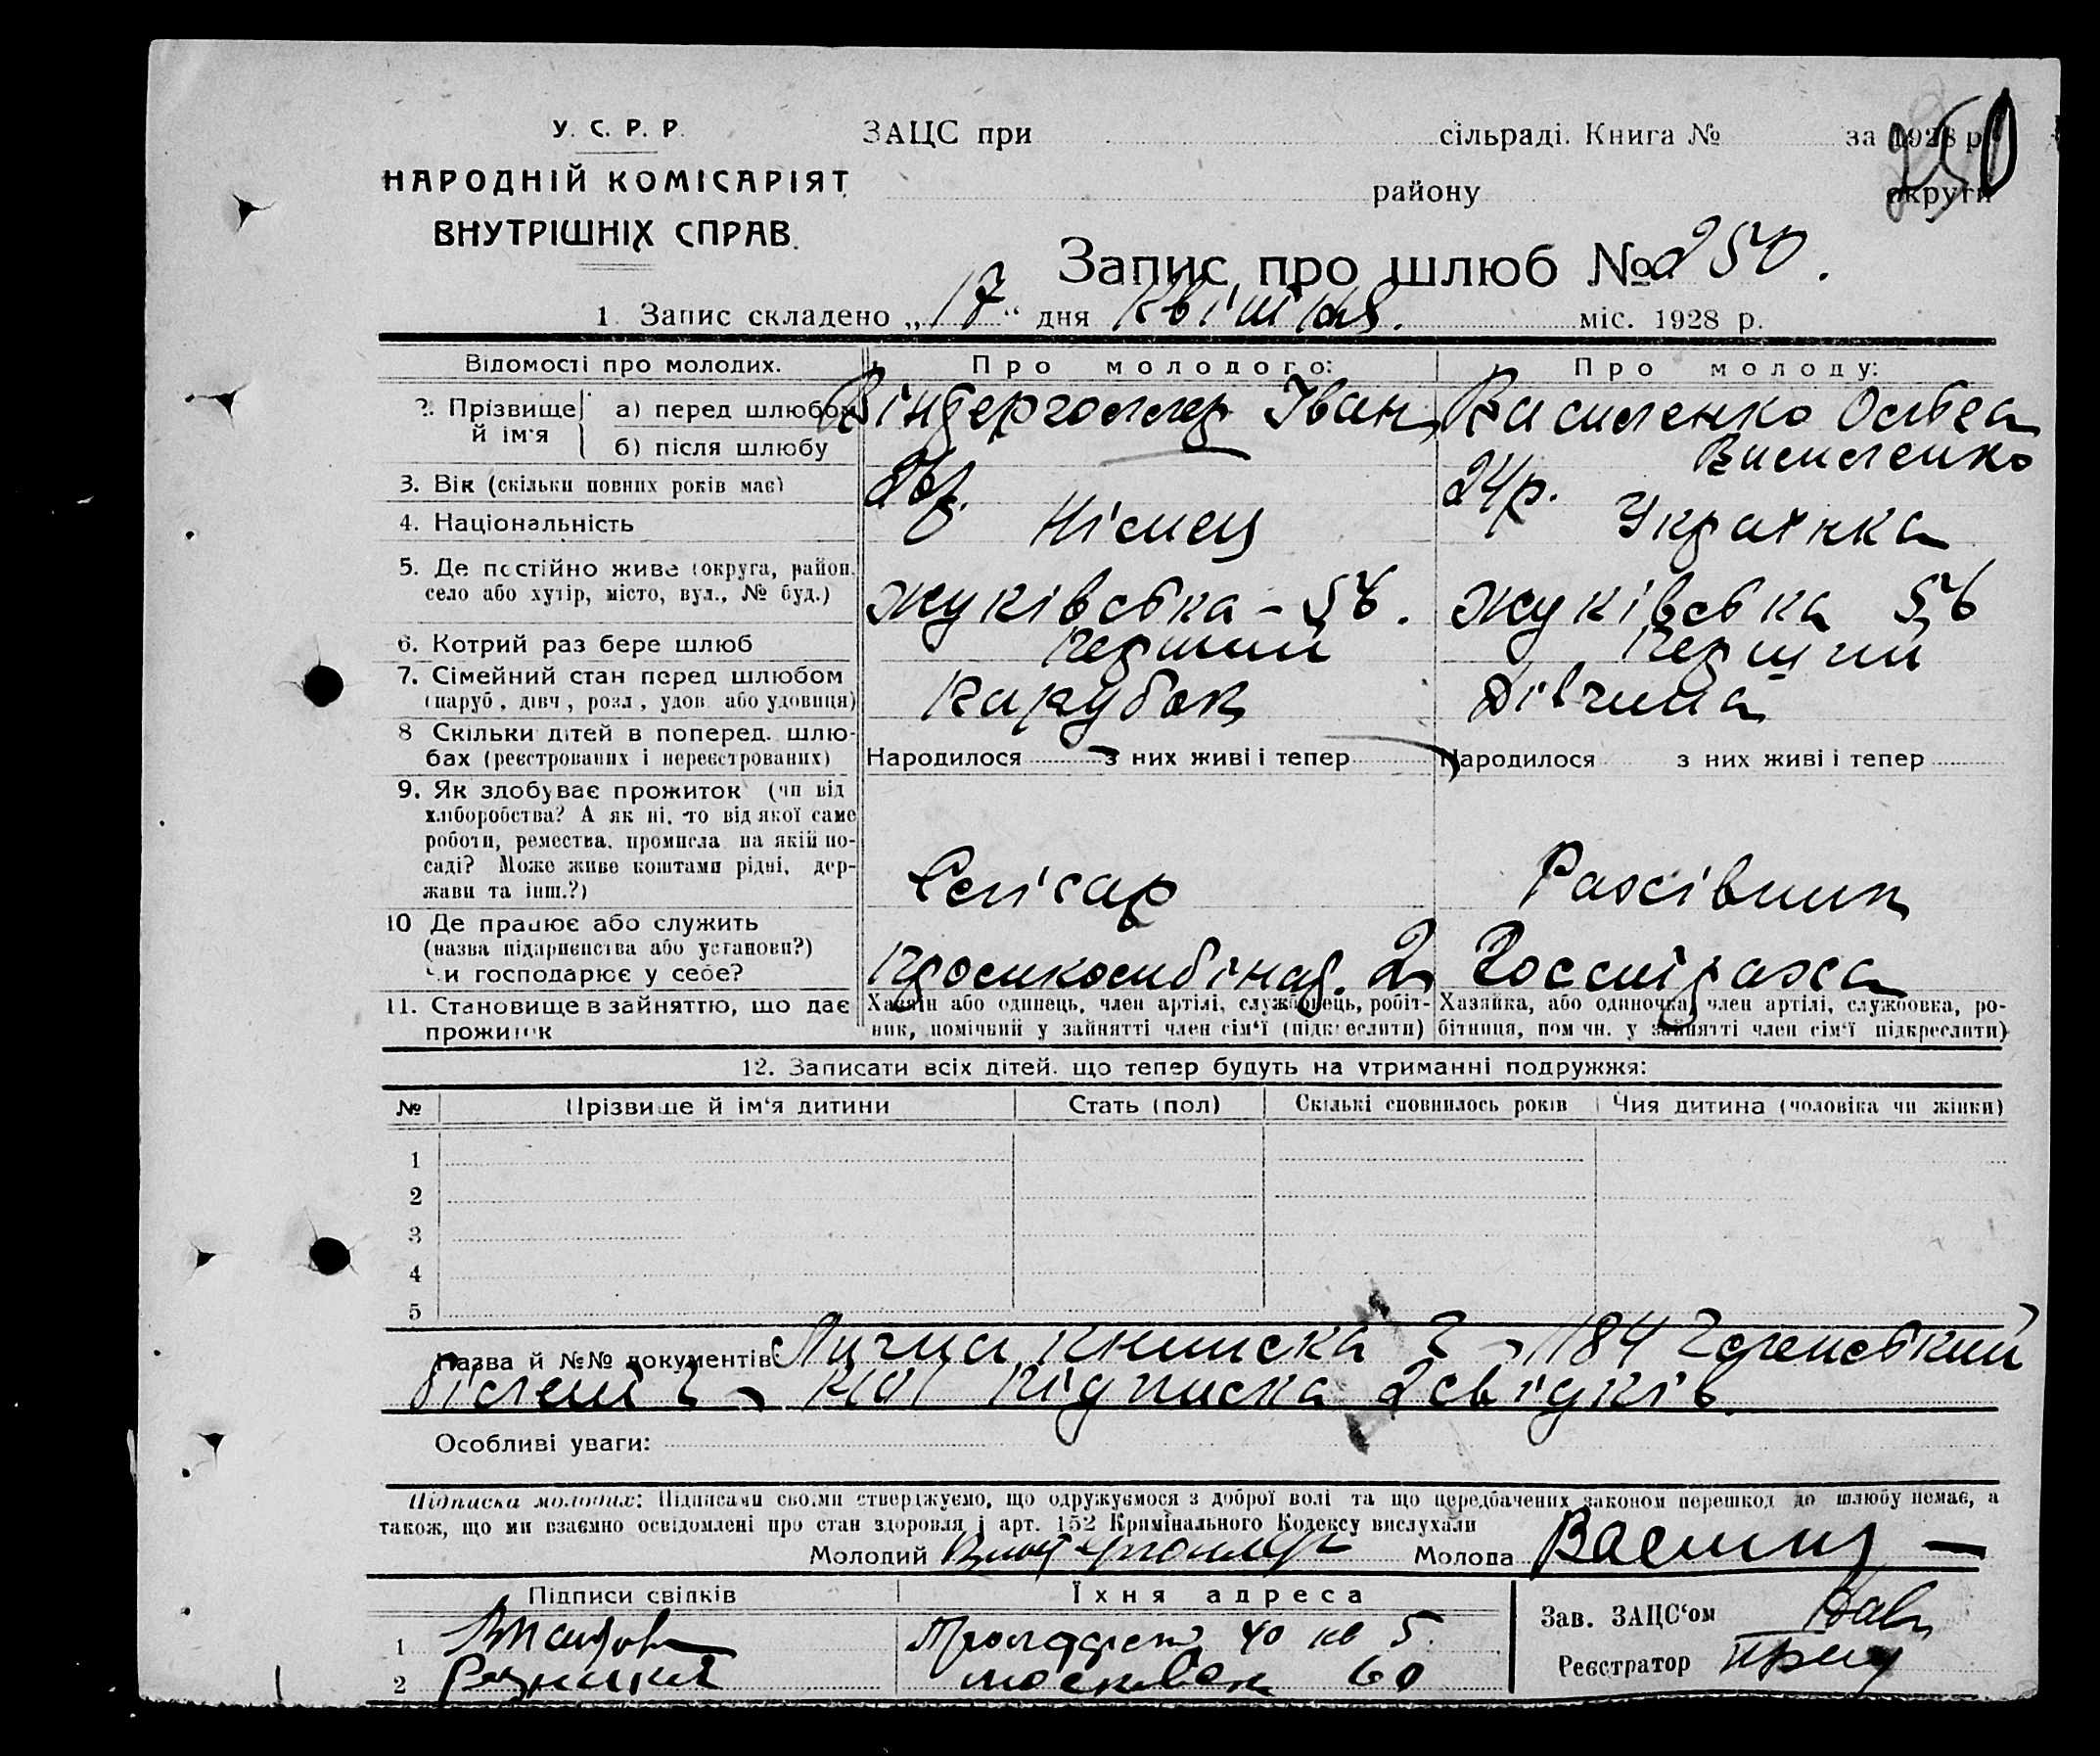 250
У. С. Р. Р.
НАРОДНІЙ КОМІСАРІЯТ
ВНУТРІШНІХ СПРАВ.
ЗАЦС при сільраді. Книга № за 1928 р.
району округи
Запис про шлюб № 250.
1. Запис складено „17“ дня Квітня. міс. 1928 р.
Відомості про молодих. Про молодого: Про молоду:
2. Прізвище й ім'я а) перед шлюбом Іван Василенко
б) після шлюбу Василенко
3. Вік (скільки повних років має) 26 р. 24 р.
4. Національність Німець Українка
5. Де постійно живе (округа, район, село або хутір, місто, вул., № буд.) Жуківська - 56. Жуківська 56
6. Котрий раз бере шлюб перший перший
7. Сімейний стан перед шлюбом (паруб., дівч., розл., удов. або удовиця) Парубок Дівчина
8 Скільки дітей в поперед. шлюбах (реєстрованих і нереєстрованих) Народилося з них живі і тепер Народилося з них живі і тепер
9. Як здобуває прожиток (чи від хліборобства? А як ні, то від якої саме роботи, ремества, промисла на якій посаді? Може живе коштами рідні, держави та інш.?) Слюсар Рахівник
10 Де працює або служить (назва підприємства або установи?) Чи господарює у себе? Госстраха
11. Становище в зайняттю, що дає прожиток Хазяїн або одинець, член артілі, службовець, робітник, помічний у зайнятті член сім'ї (підкреслити) Хазяйка, або одиночка, член артілі, службовка, робітниця, пом чн. у зайнятті член сім'ї підкреслити)
12. Записати всіх дітей, що тепер будуть на утриманні подружжя:
№ Прізвище й ім'я дитини Стать (пол) Скількі сповнилось років Чия дитина (чоловіка чи жінки)
1
2
3
4
5
Назва й №№ документів: Лична книжка 1184
підписка 2 свідків.
Особливі уваги:
Підписка молодих: Підписами своїми стверджуємо, що одружуємося з доброї волі та що передбачених законом перешкод до шлюбу немає, а
також, що ми взаємно освідомлені про стан здоровля і арт. 152 Кримінального Кодексу вислухали
Молодий Молода
Підписи свідків Їхня адреса
1 40 кв 5.
2 60
Зав. ЗАЦС'ом
Реєстратор